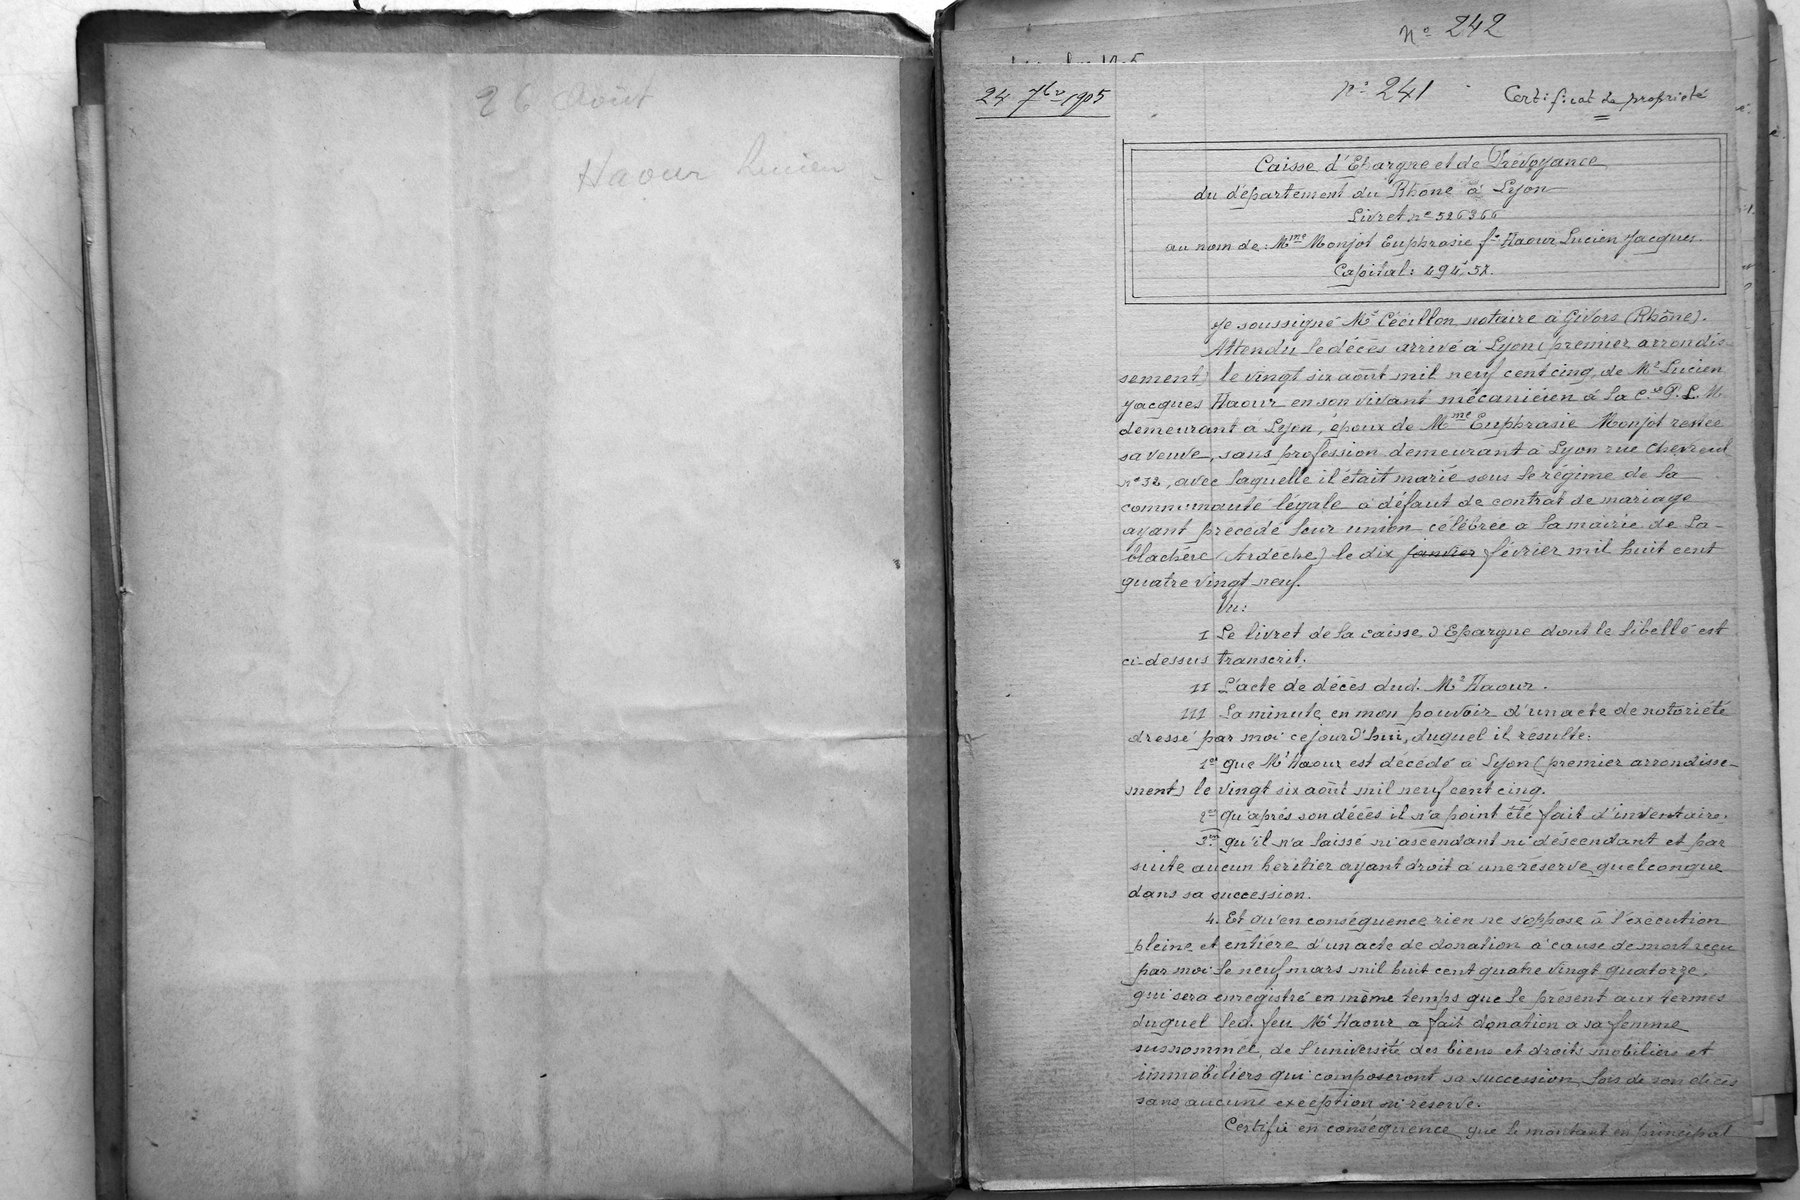 26 Août
Haour Lucien
Nº 242
24 7bre 1905
nº 241
Certificat de propriété
Caisse d'Epargne et de Prévoyance
du département du Rhône à Lyon
Livret nº 526366
au nom de: Mme Monjot Euphrasie fe Haour Lucien Jacques.
Capital: 494f 57.
Je soussigné Me Cécillon notaire à Givors (Rhône).
Attendu le décès arrivé à Lyon (premier arrondis-
sement) le vingt six août mil neuf cent cinq, de Mr Lucien
Jacques Haour en son vivant mécanicien à la Cie P. L. M
demeurant à Lyon, époux de Mme Euphrasie Monjot restée
sa veuve, sans profession demeurant à Lyon rue Chevreul
nº 32, avec laquelle il était marié sous le régime de la
communauté légale à défaut de contrat de mariage
ayant précédé leur union célébrée à la mairie de La-
blachère (Ardèche) le dix janvier février mil huit cent
quatre vingt neuf.
Vu:
I Le livret de la caisse d'Epargne dont le libellé est
ci-dessus transcrit.
II L'acte de décès dud. Mr Haour.
III La minute en mon pouvoir d'un acte de notoriété
dressé par moi cejourd'hui, duquel il resulte:
1er que Mr Haour est décédé à Lyon (premier arrondisse-
ment) le vingt six août mil neuf cent cinq.
2ent qu'aprés son décès il n'a point été fait d'inventaire.
3ent qu'il n'a laissé ni ascendant ni déscendant et par
suite aucun heritier ayant droit à une réserve quelconque
dans sa succession.
4. Et qu'en conséquence rien ne s'oppose à l'exécution
pleine et entière d'un acte de donation à cause de mort reçu
par moi le neuf mars mil huit cent quatre vingt quatorze,
qui sera enregistré en même temps que le présent aux termes
duquel led. feu Mr Haour a fait donation a sa femme
susnommée, de l'université des biens et droits mobiliers et
immobiliers qui composeront sa succession lors de son décès
sans aucune exception ni réserve.
Certifie en conséquence que le montant en principal